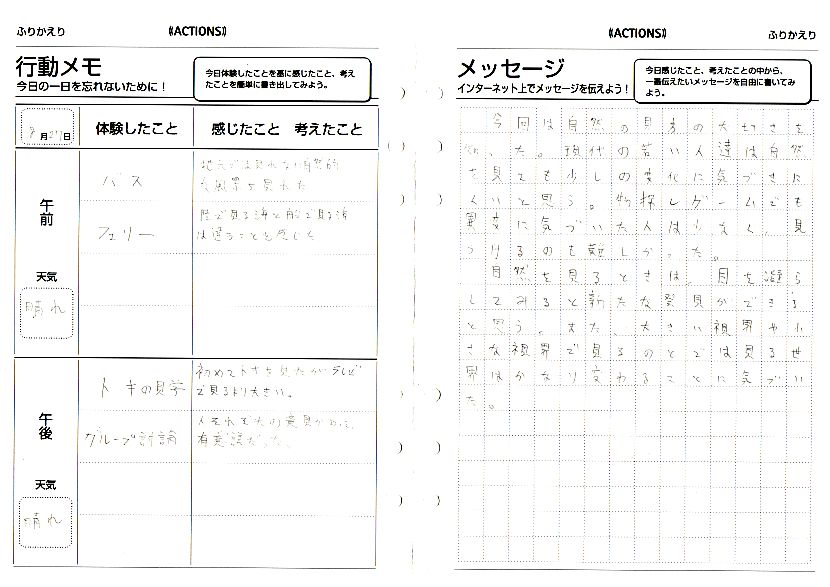 ふりかえり
《ACTIONS》
行動メモ
今日の一日を忘れないために！
今日体験したことを基に感じたこと、考え
たことを簡単に書き出してみよう。
月 日
体験したこと
感じたこと 考えたこと
午前
バス
地元では見れない自然的
な風景を見れた
フェリー
陸で見る海と船で見る海
は違うことを感じた
天気
晴れ
午後
トキの見学
初めてトキを見たがテレビ
で見るより大きい。
グループ討論
有意義だった。
天気
晴れ
《ACTIONS》
ふりかえり
メッセージ
インターネット上でメッセージを伝えよう！
今日感じたこと、考えたことの中から、
一番伝えたいメッセージを自由に書いてみ
よう。
今回は自然の見方の大切さを
知った。現代の若い人達は自然
を見ても少しの変化に気づきに
くいと思う。物探しゲームでも
異変に気づいた人は少なく、見
つけるのも難しかった。
自然を見るときは、目を凝ら
してみると新たな発見ができる
と思う。また、大きい視界や小
さな視界で見るのとでは見る世
界はかなり変わることに気づい
た。